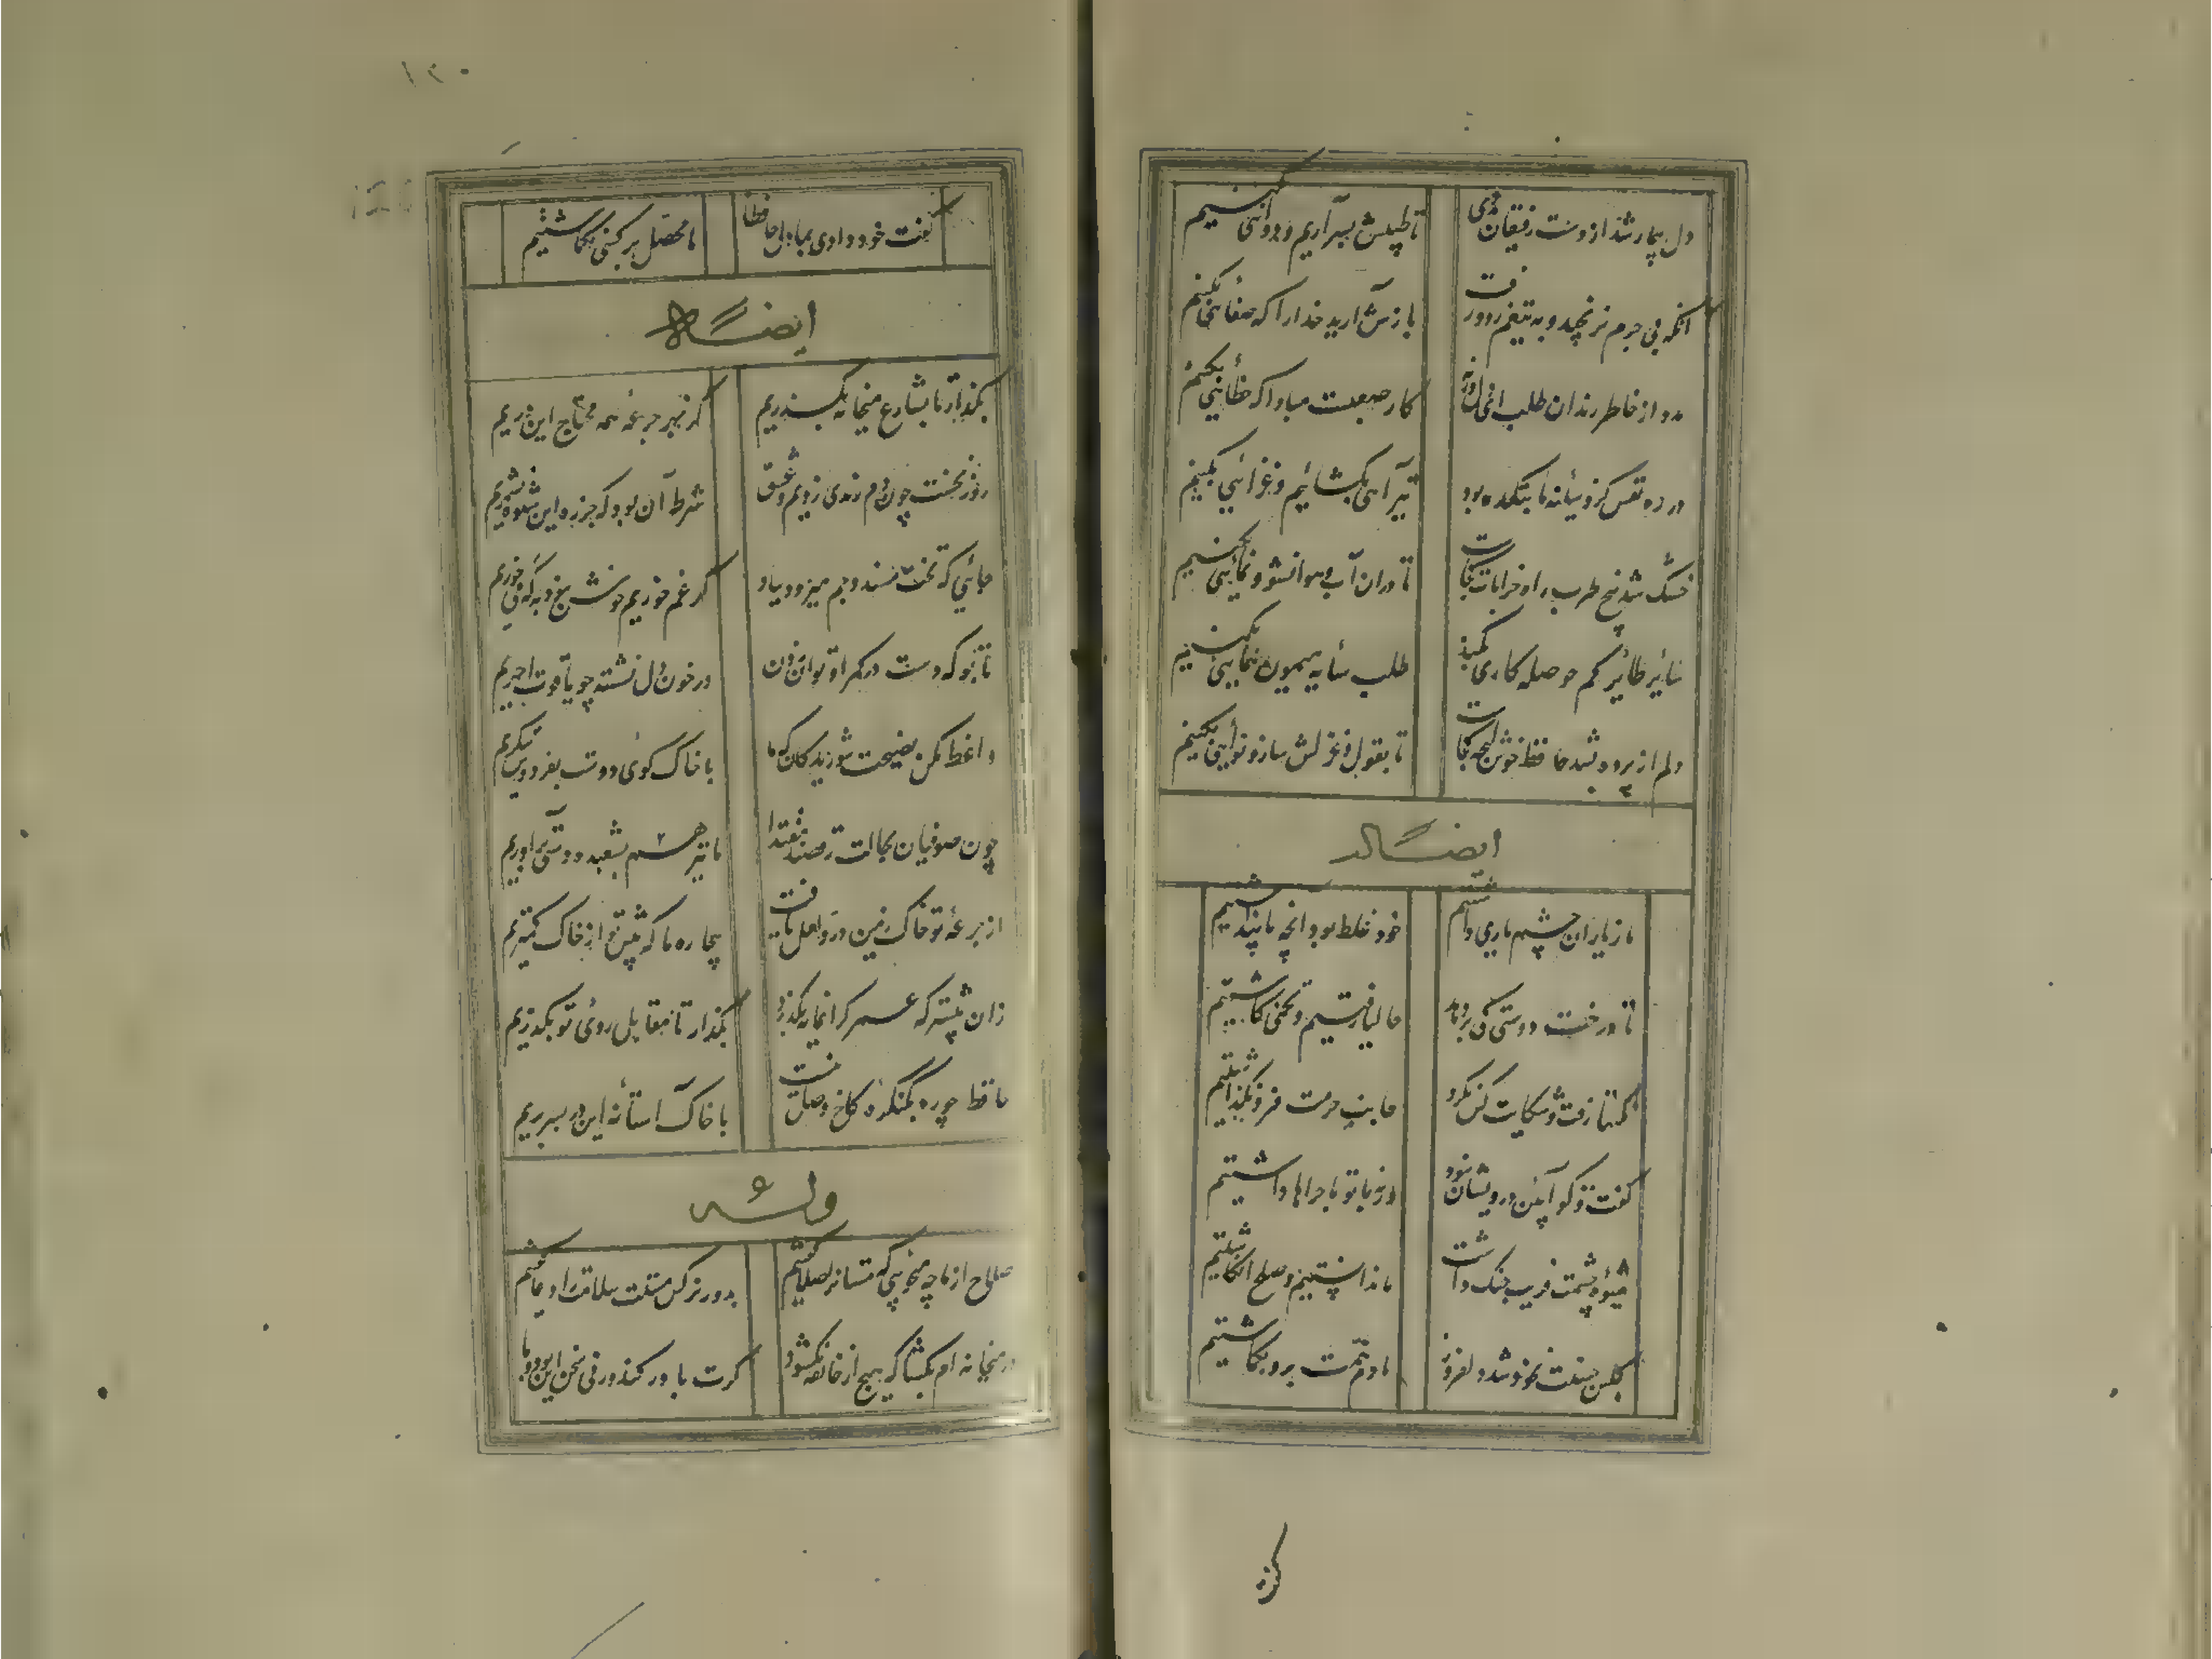 دل بیمار شد از دست رفیقان مددی
تا طبیبش بسر آریم و دوائی بکنیم
آنکه بی جرم برنجید و به تیغم زد و رفت
بازش آرید خدا را که صفائی بکنیم
مدد از خاطر رندان طلب ای دل ورنه
کار صعبست مبادا که خطائی بکنیم
در ره نفس کزو سینه ما بتکده بود
تیر آهی بکشائیم و غزائی بکنیم
خشک شد بیخ طرب راه خرابات کجاست
تا دران آب و هوا نشو و نمائی بکنیم
سایر طائر کم حوصله کاری نکند
طلب سایه میمون همائی بکنیم
دلم از پرده بشد حافظ خوش لهجه کجاست
تا بقول و غزلش ساز و نوائی بکنیم
ایضاله
ما ز یاران چشم یاری داشتیم
خود غلط بود انچه ما پنداشتیم
تا درخت دوستی کی بر دهد
حالیا رفتیم و تخمی کاشتیم
نکتها رفت و شکایت کس نکرد
جانب حرمت فرو نگذاشتیم
گفت و گو آیین درویشان نبود
ورنه با تو ماجراها داشتیم
شیوه چشمت فریب جنک داشت
ما ندانستیم و صلح انکاشتیم
گلبن حسنت نه خود شد دلفروز
ما دم همت برو بکماشتیم
گفت
۱۲۰
گفت خود دادی بما دل حافظا
ما محصل بر کسی نکماشتیم
ایضاله
بکذار تا بشارع میخانه بگذریم
کز بهر جرعه همه محتاج این دریم
روز نخست چون دم رندی زدیم و عشق
شرط آن بود که جز ره این شیوه نسپریم
جائی که تخت و مسند جم میرود بباد
گر غم خوریم خوش نبود به که می خوریم
تا بو که دست در کمر او توان زدن
در خون دل نشسته چو یاقوت احمریم
واعظ مکن نصیحت شوریدکان که ما
با خاک کوی دوست بفردوس ننکریم
چون صوفیان بحالت رقصند مقتدا
ما نیز هم بشعبده دستی برآوریم
از جرعه تو خاک زمین در و لعل یافت
بیچاره ما که پیش تو از خاک کمتریم
زان پیشتر که عمر گرانمایه بکذرد
بکذار تا مقابل روی تو بکذریم
حافظ چو ره بکنگره کاخ وصل نیست
با خاک آستانه این در بسر بریم
وله
صلاح از ما چه میجویی که مستانرا صلا گفتیم
بدور نرگس مستت سلامت را دعا گفتیم
در میخانه ام بکشا که هیچ از خانقه نکشود
گرت باور کند ور نی سخن این بود و ما